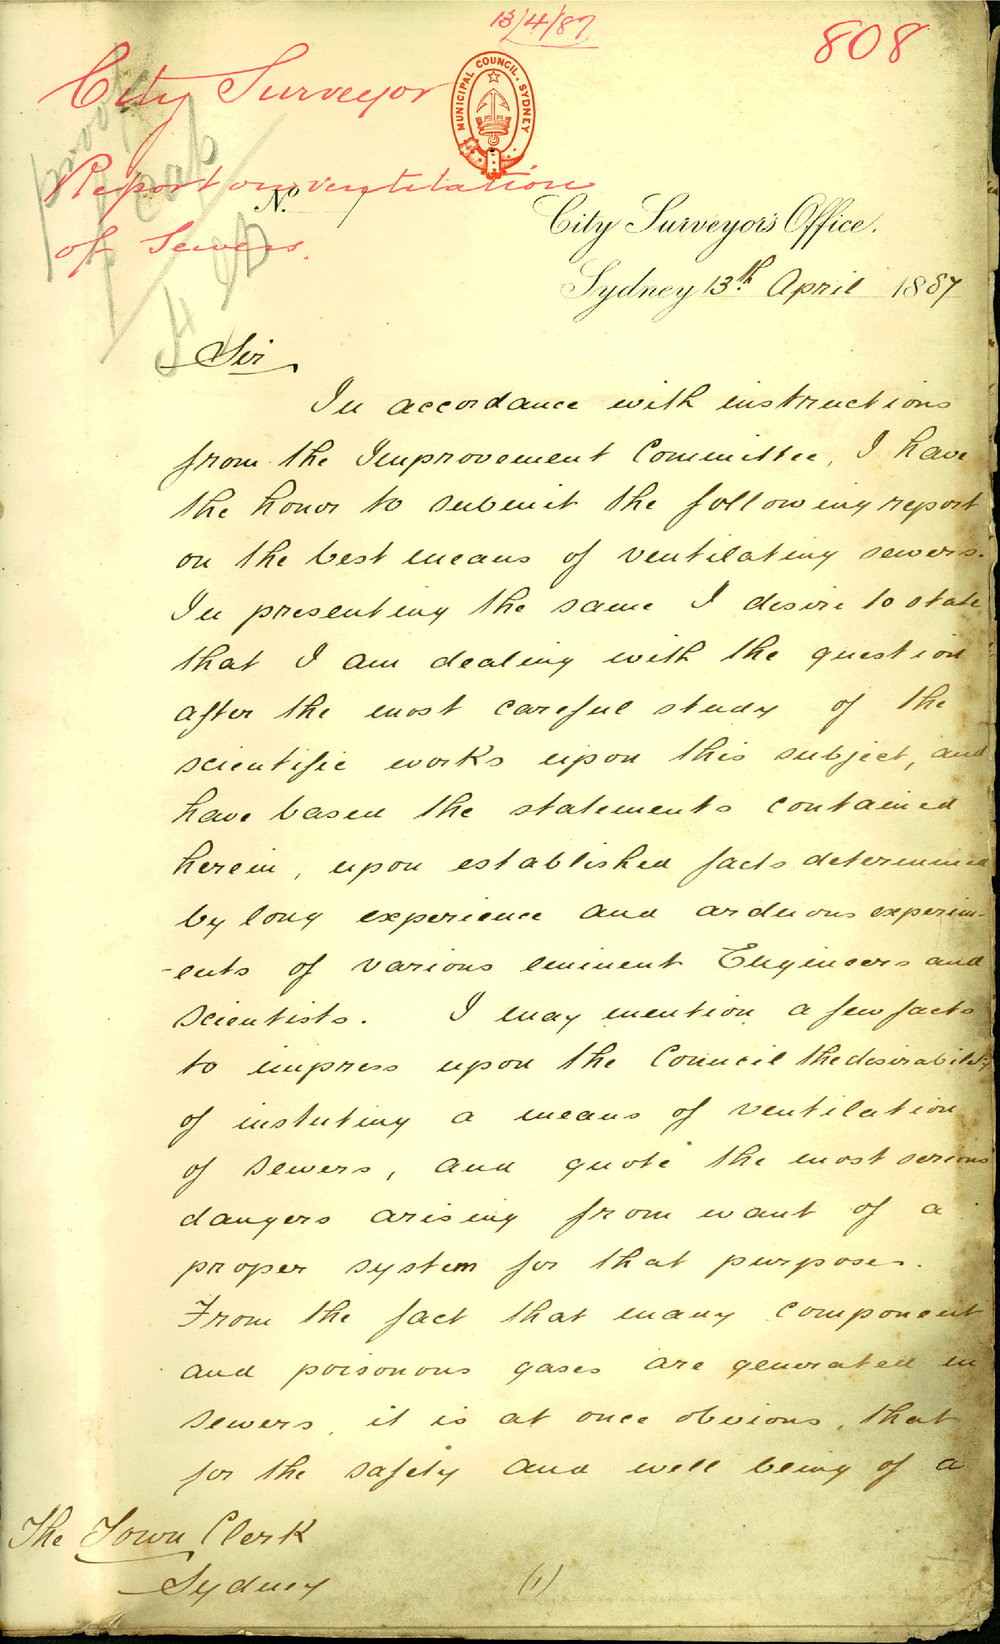 13/4/87
808
City Surveyor
MUNICIPAL COUNCIL. SYDNEY
Report on ventilation
of Sewers.
No.
City Surveyor's Office.
Sydney 13th April 1887
Sir
In accordance with instructions
from the Improvement Committee, I have
the honor to submit the following report
on the best means of ventilating sewers.
In presenting the same I desire to state
that I am dealing with the question
after the most careful study of the
scientific works upon this subject, and
have based the statements contained
herein, upon established facts determined
by long experience and arduous experim-
-ents of various eminent Engineers and
scientists. I may mention a few facts
to impress upon the Council the desirability
of instuting a means of ventilation
of sewers, and quote the most serious
dangers arising from want of a
proper system for that purpose.
From the fact that many component
and poisonous gases are generated in
sewers, it is at once obvious, that
for the safety and well being of a
The Town Clerk
Sydney
(1)